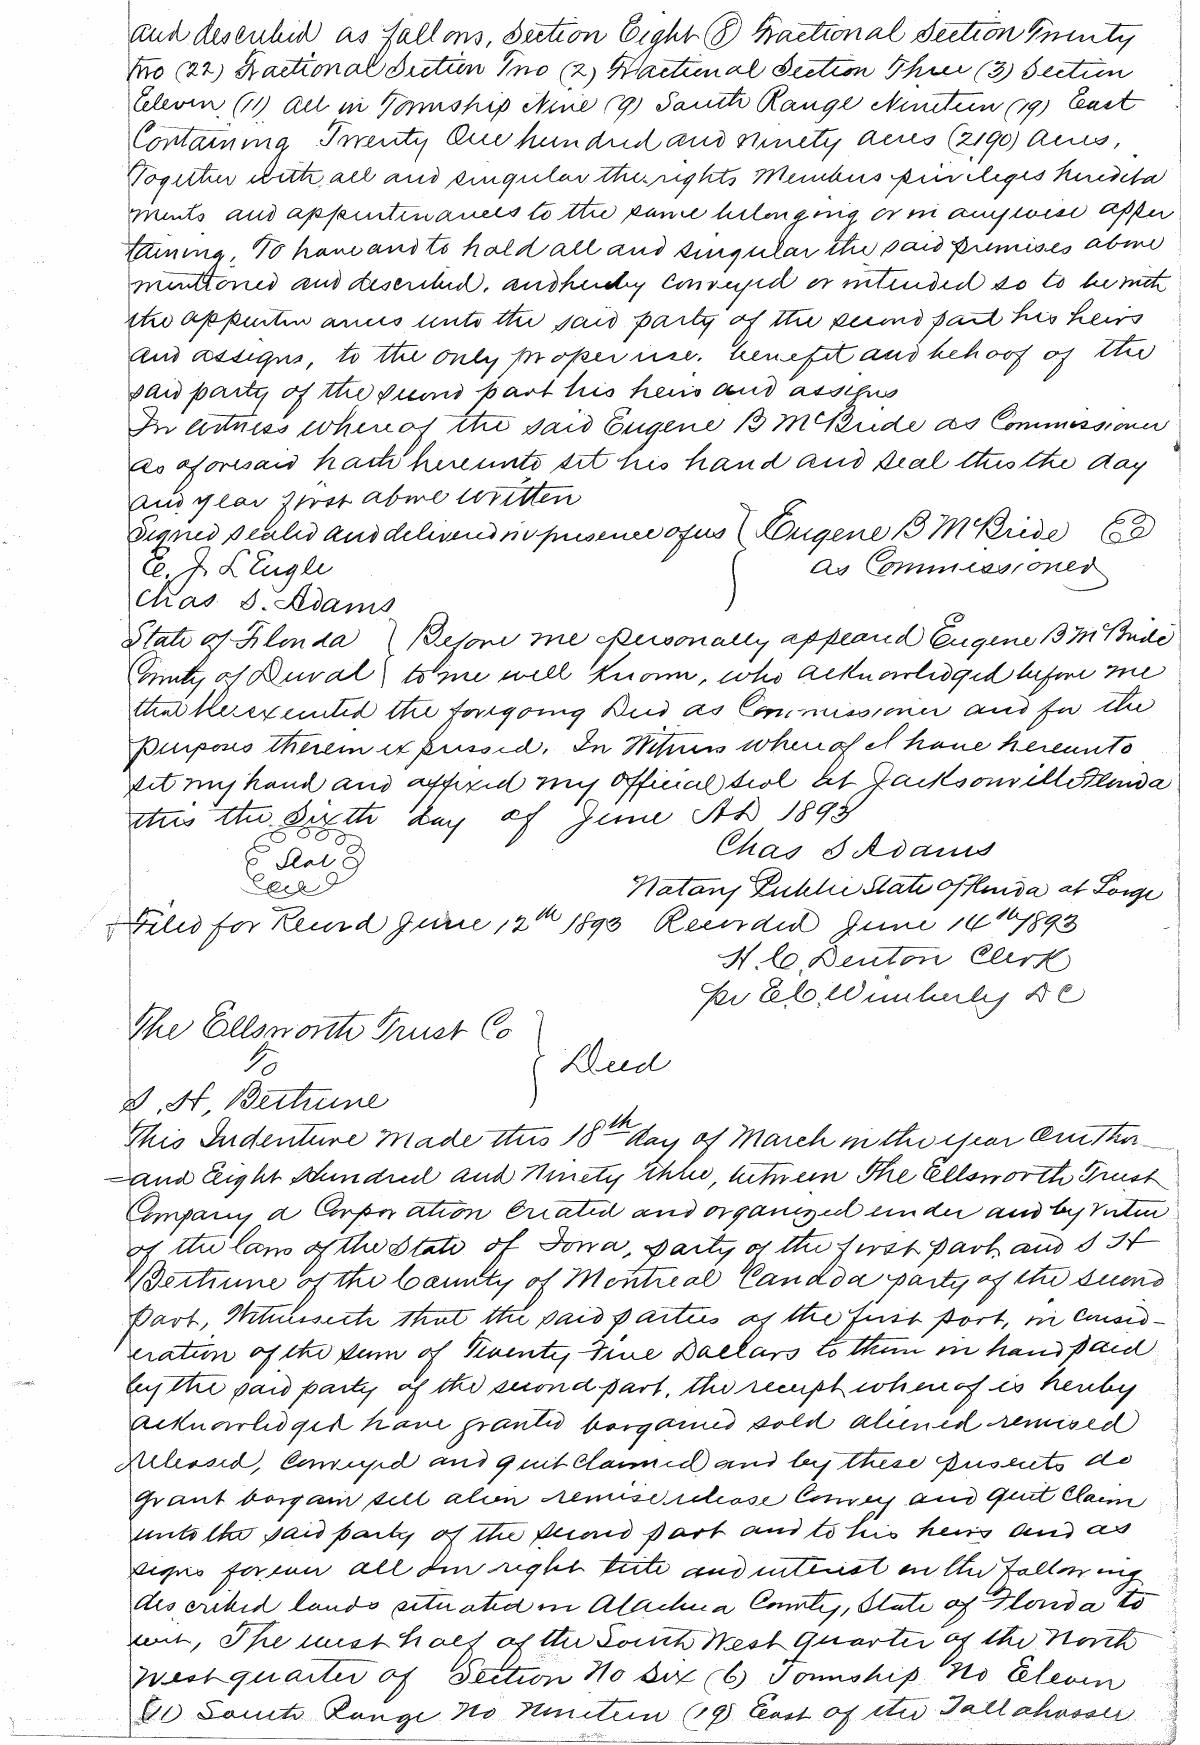 and described as follows, Section Eight (8) Fractional Section Twenty
two (22) Fractional Section Two (2) Fractional Section Three (3) Section
Eleven (11) all in Township Nine (9) South Range Nineteen (19) East
Containing Twenty One hundred and ninety acres (2190) acres,
Together with all and singular the rights Members privileges heredita
ments and appurtenances to the same belonging or in anywise apper
taining. To have and to hold all and singular the said premises above
mentioned and described, and hereby conveyed or intended so to be with
the appurtenances unto the said party of the second part his heirs
and assigns, to the only proper use, benefit and behoof of the
said party of the second part his heirs and assigns
In witness whereof the said Eugene B McBride as Commissioner
as aforesaid hath hereunto set his hand and seal this the day
and year first above written
Signed sealed and delivered in presence of us { Eugene B McBride
E. J. L'Engle as Commissioner
Chas S. Adams
State of Florida } Before me personally appeared Eugene B McBride
County of Duval } to me well known, who acknowledged before me
that he executed the foregoing Deed as Commissioner and for the
purposes therein expressed. In Witness whereof I have hereunto
set my hand and affixed my official seal at Jacksonville Florida
this the Sixth day of June AD 1893
Seal
Chas S Adams
Notary Public State of Florida at Large
Filed for Record June 12th 1893 Recorded June 14th 1893
H. C. Denton Clerk
pr E. C. Wimberly D C
The Ellsworth Trust Co
To } Deed
S. H. Bethune
This Indenture made this 18th day of March in the year One Thou
=and Eight Hundred and Ninety three, between The Ellsworth Trust
Company a Corporation created and organized under and by virtue
of the laws of the State of Iowa, party of the first part and S H
Bethune of the County of Montreal Canada party of the second
part, Witnesseth that the said parties of the first part, in consid-
eration of the sum of Twenty Five Dollars to them in hand paid
by the said party of the second part, the receipt whereof is hereby
acknowledged have granted bargained sold aliened remised
released, conveyed and quit claimed and by these presents do
grant bargain sell alien remise release convey and quit claim
unto the said party of the second part and to his heirs and as
signs forever all our right title and interest in the following
described lands situated in Alachua County, State of Florida to
wit, The west half of the South West quarter of the North
West quarter of Section No Six (6) Township No Eleven
(11) South Range No Nineteen (19) East of the Tallahassee